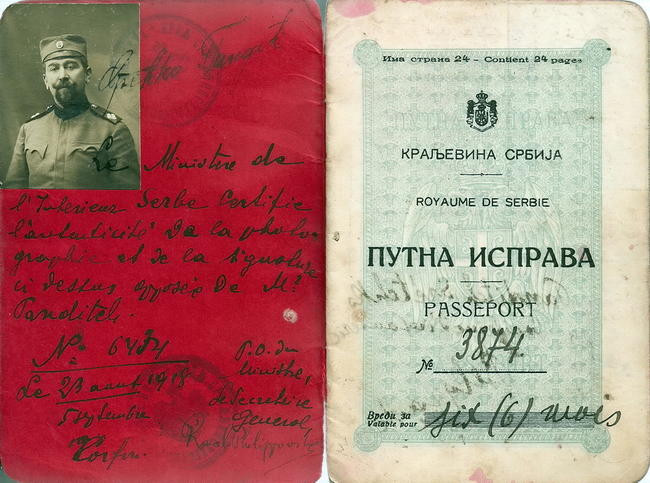 Le Ministere de
l'Interieur Serbe Certifie
l'autenticité de la photo-
graphie et de la signature
ci dessus apposée De Mr
Panditch.
No 6434
Le 23 aout 1918
5 septembre
Corfou
P.O. du
Ministre,
de Secretaire
General,
Има страна 24 – Contient 24 pages
КРАЉЕВИНА СРБИЈА
ROYAUME DE SERBIE
ПУТНА ИСПРАВА
PASSEPORT
№ 3874
Вреди за
Valable pour six (6) mois